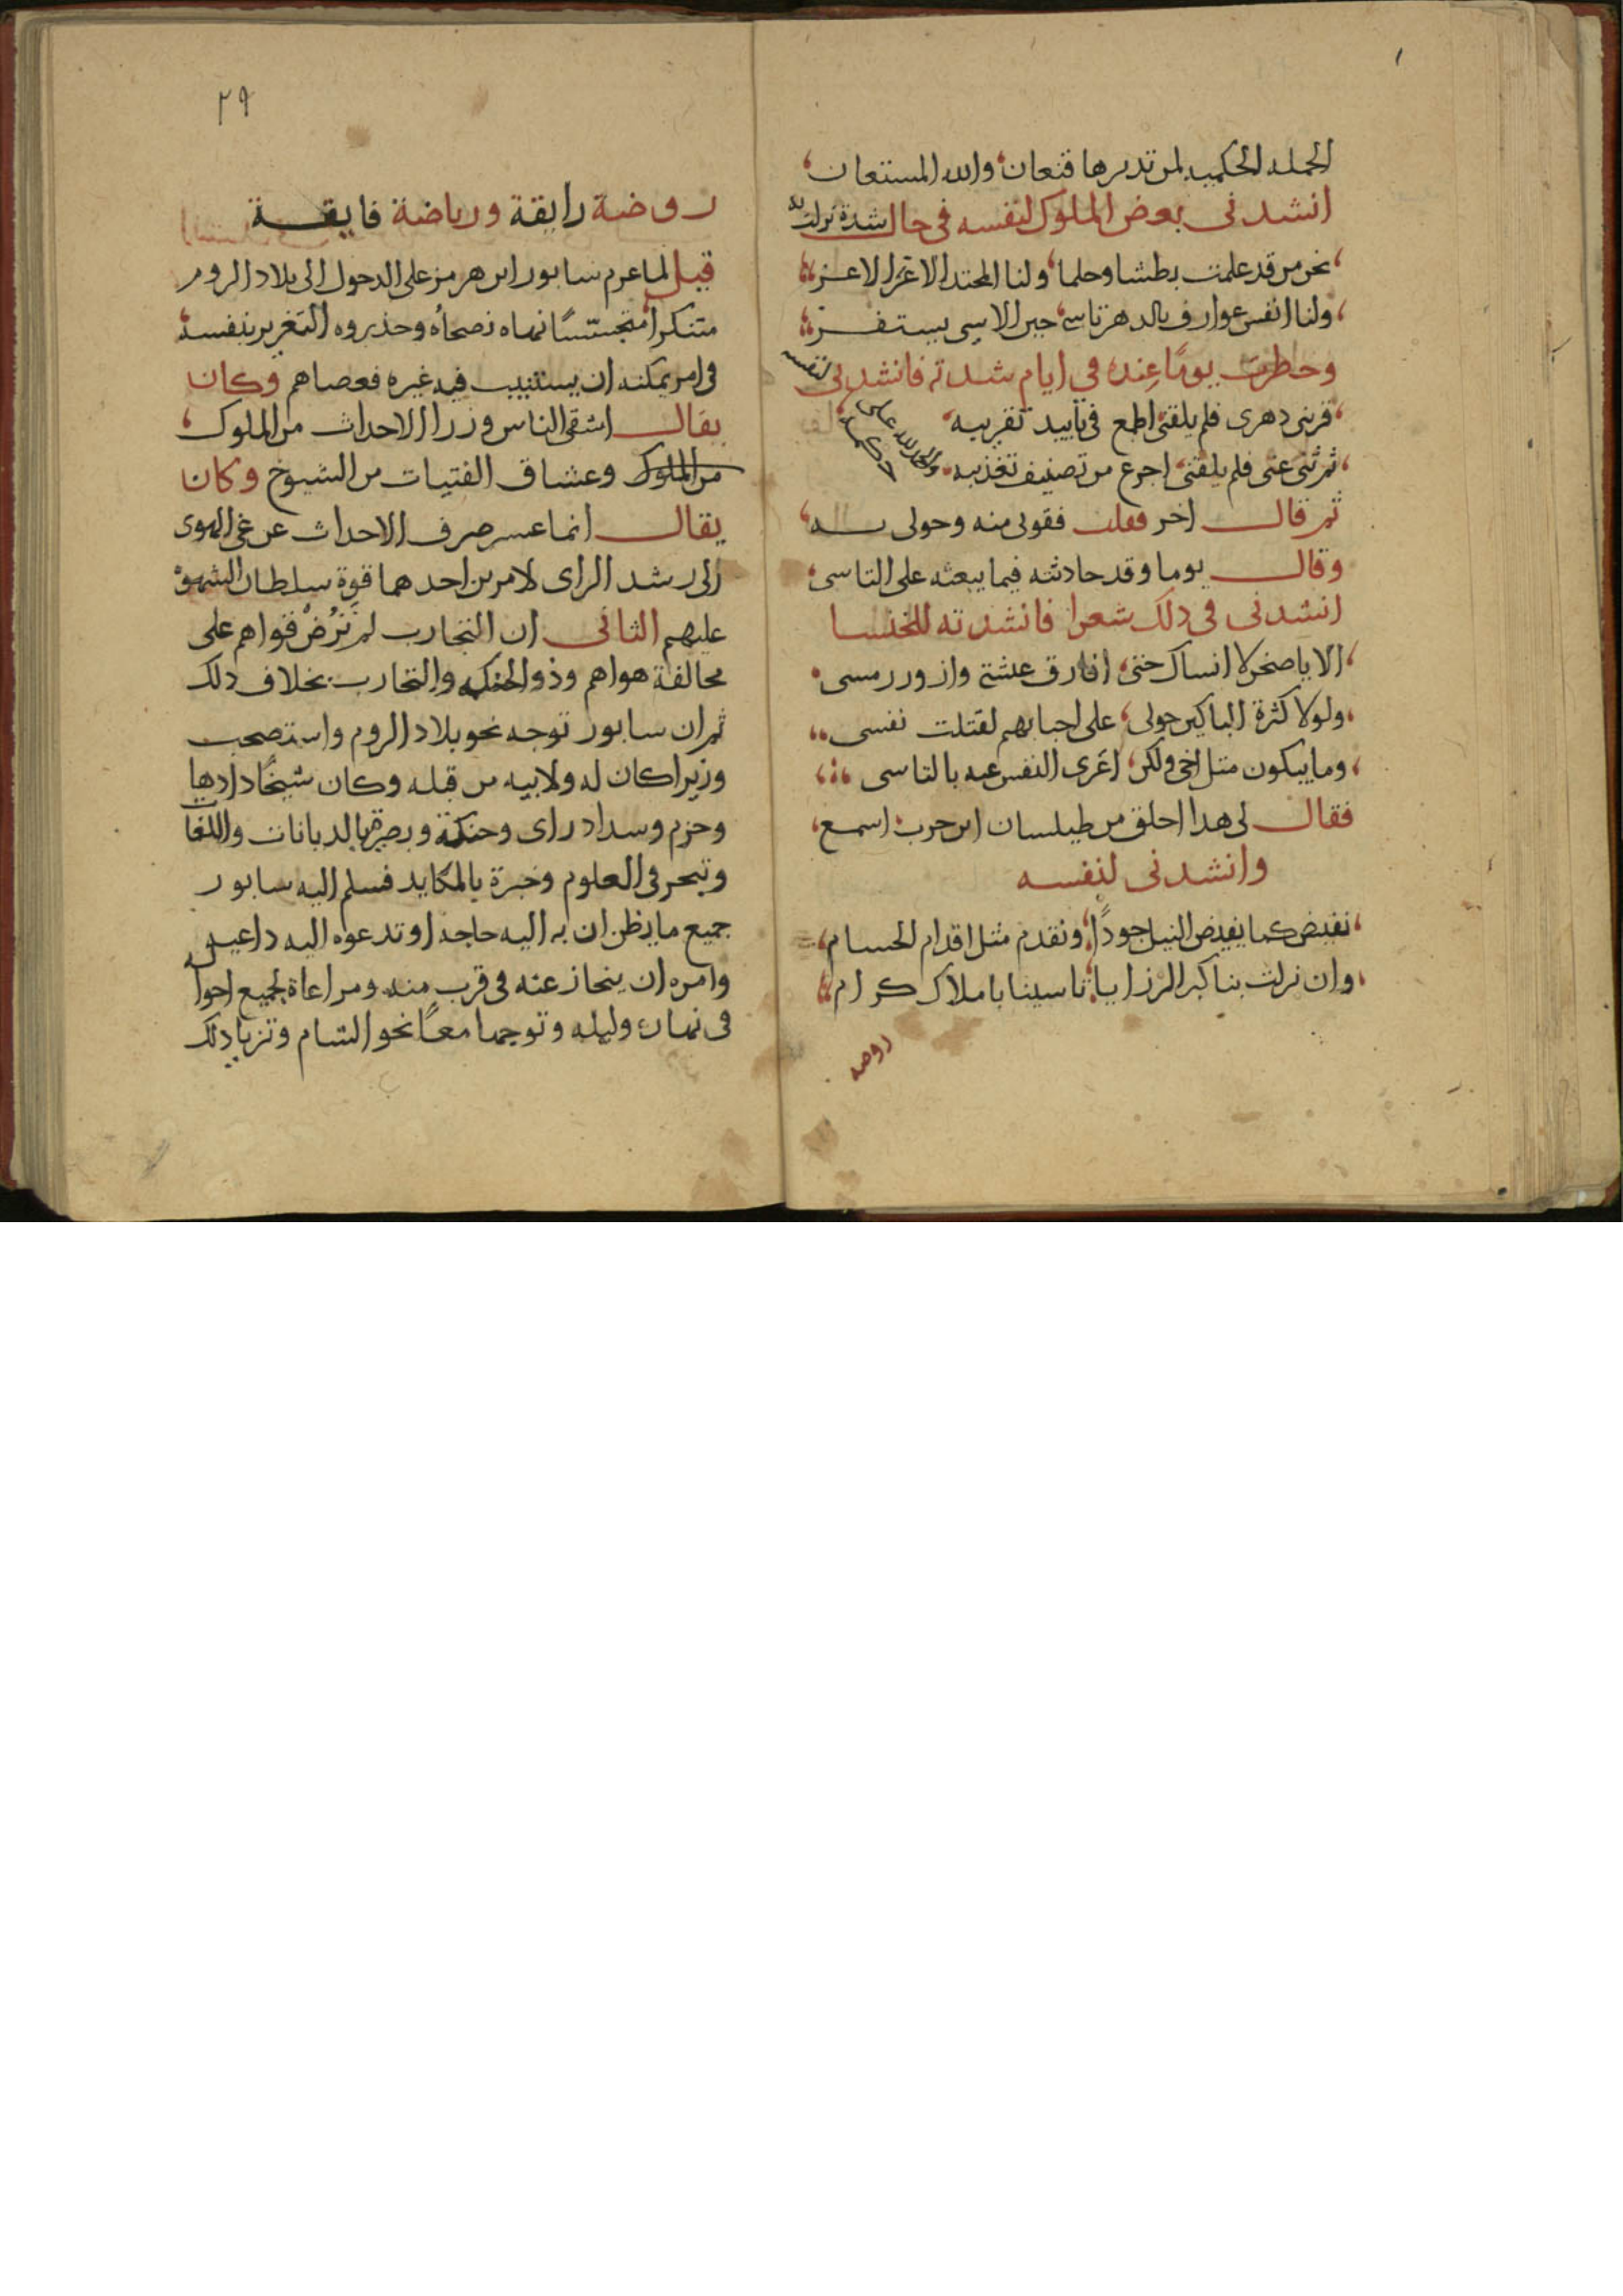 الجمله الحكميه لمن تدبرها قنعان والله المستعان
انشدنى بعض الملوك لنفسه فى حال شدة نزلت به
نحن من قد علمت بطشا وحلما ولنا المحتد الاغر الاعز
ولنا انفس عوارف بالدهر تاسى حين الاسى يستفز
وخاطرت يومًا عنده في ايام شدته فانشدنى لنفسه
قربنى دهرى فلم يلقنى اطمع فى تاييد تقريبه
ثم ثنى عنى فلم يلقنى اجزع من تصنيف تغذيبه
والحمد لله على
ثم قال اخر فقلت فقولى منه وحولى به
وقال يوما وقد حادثته فيما يبعثه على التاسى
انشدنى فى ذلك شعرا فانشدته للخنسا
الا يا صخر لا انساك حتى افارق عشتى وازور رمسى
ولولا كثرة الباكين حولى على احبابهم لقتلت نفسى
وما يبكون مثل اخى ولكن اعزى النفس عنه بالتاسى
فقال لى هدا اخلق من طيلسان ابن حرب اسمع
وانشدنى لنفسه
نفيض كما يفيض النيل جودًا ونقدم مثل اقدام الحسام
وان نزلت بنا كبر الرزايا تاسينا باملاك كرام
روضه
٢٩
روضة رايقة ورياضة فايقة
قيل لما عزم سابور ابن هرمز على الدخول الى بلاد الروم
متنكرا متجسّسًا نهاه نصحاؤه وحذروه التغرير بنفسه
فى امر يمكنه ان يستنيب فيه غيره فعصاهم وكان
يقال اشقى الناس وزرا الاحداث من الملوك
من الملوك وعشاق الفتيات من الشيوخ وكان
يقال انما عسر صرف الاحداث عن غى الهوى
الى رشد الراى لامرين احدهما قوة سلطان الشهوة
عليهم الثانى ان التجارب لم تَرُضْ قواهم على
مخالفة هواهم وذو الحنكه والتجارب بخلاف دلك
ثم ان سابور توجه نحو بلاد الروم واستصحب
وزيرا كان له ولابيه من قبله وكان شيخًا دا دها
وحزم وسداد راى وحنكة وبصيرة بالديانات واللغات
وتبحر فى العلوم وخبرة بالمكايد فسلم اليه سابور
جميع ما يظن ان به اليه حاجة او تدعوه اليه داعية
وامره ان ينحاز عنه فى قرب منه ومراعاة لجميع احواله
فى نهاره وليله وتوجها معًا نحو الشام وتزيا دلك